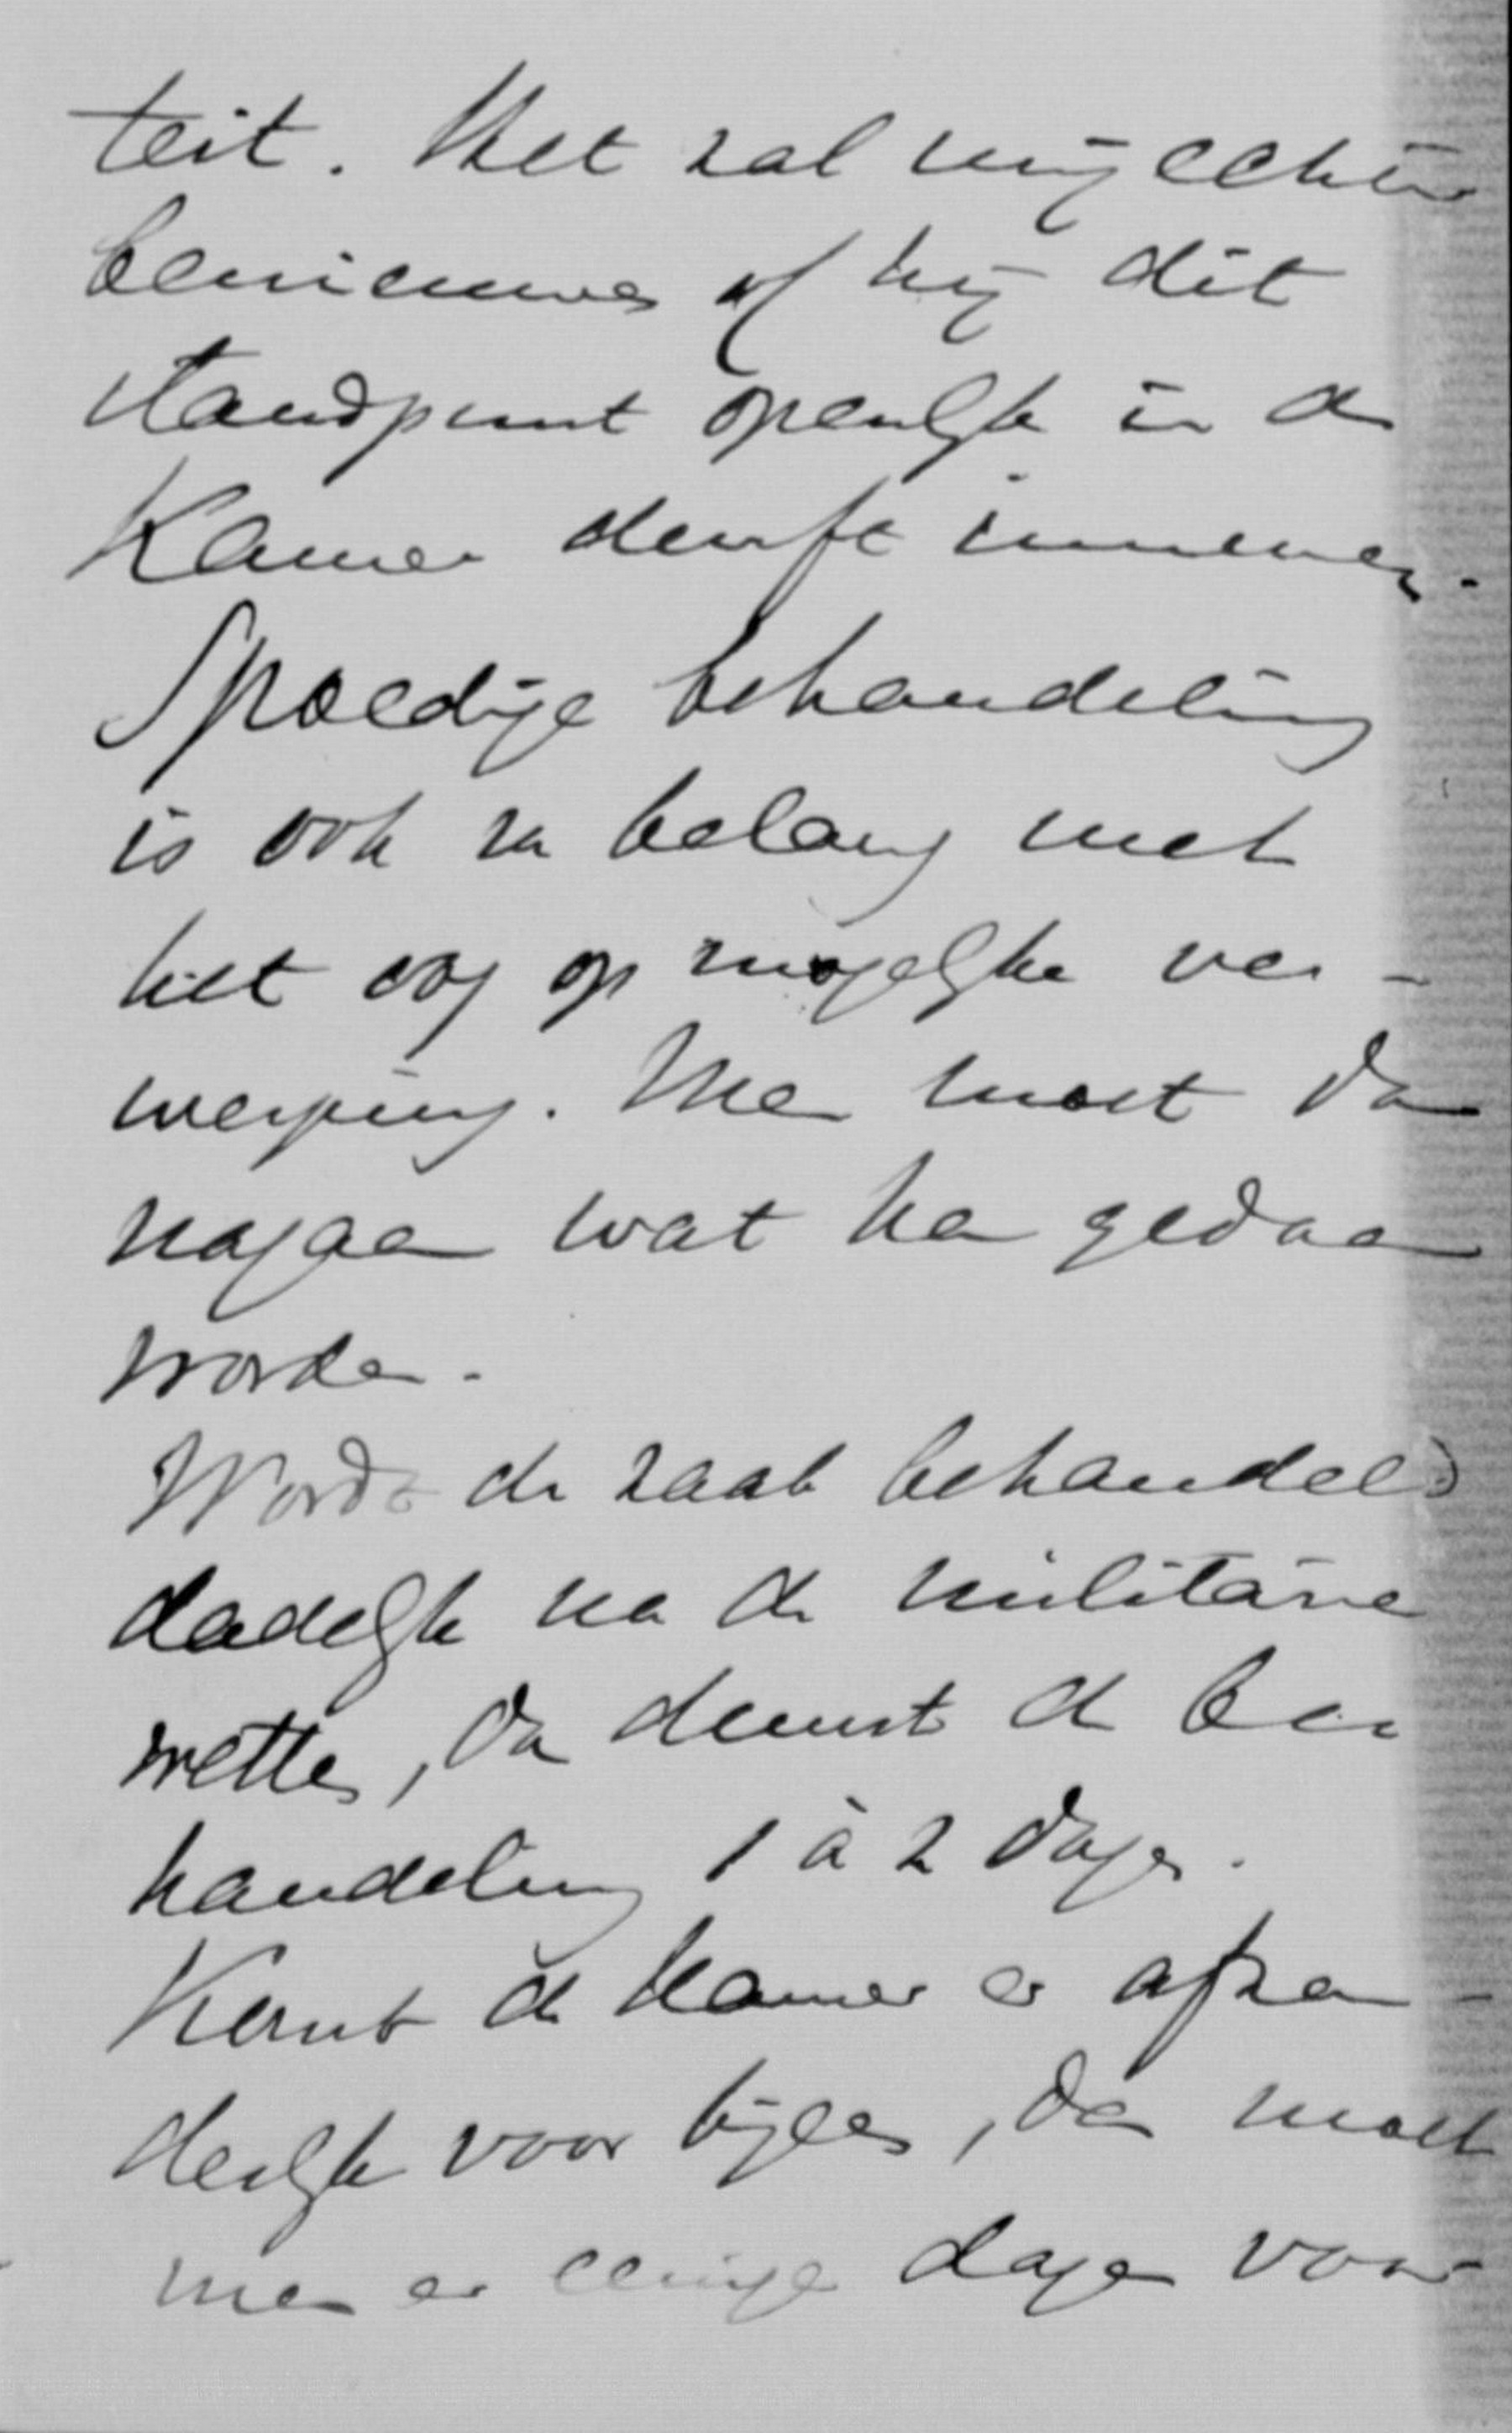 teit. Het zal mij echter
benieuwen of hij dit
standpunt openlijk in de
Kamer durft innemen.
Spoedige behandeling
is ook van belang met
het oog op mogelijke ver-
werping. Men moet dan
nagaan wat kan gedaan
worden.
Wordt de zaak behandeld
dadelijk na de militaire
wetten, dan duurt de be-
handeling 1 à 2 dagen.
Komt de Kamer er afzon-
derlijk voor bijeen, dan moet
men er eenige dagen voor